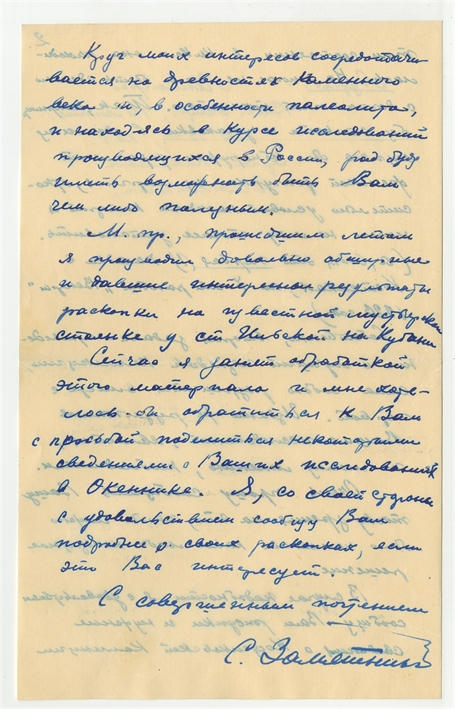 Круг моих интересов сосредотачи-
вается на древностях каменного
века и, в особенности палеолита,
и находясь в курсе исследований
производящихся в России, рад буду
иметь возможность быть Вам
чем либо полезным.
М. пр., прошедшим летом
я производил довольно обширные
и давшие интересные результаты
раскопки на известной мустьерской
стоянке у ст. Ильской на Кубани
Сейчас я занят обработкой
этого материала и мне хоте-
лось-бы обратиться к Вам
с просьбой поделиться некоторыми
сведениями о Ваших исследованиях
в Океннике. Я, со своей стороны
с удовольствием сообщу Вам
подробнее о своих раскопках, если
это Вас интересует.
С совершенным почтением
С. Замятнин